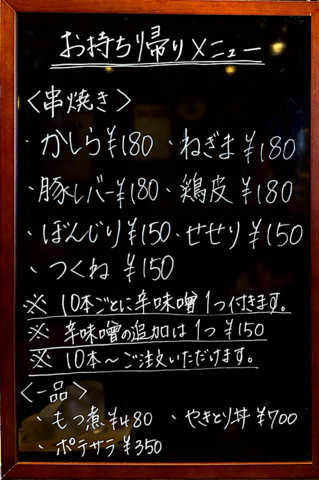 お持ち帰りメニュー
〈串焼き〉
・かしら¥180・ねぎま¥180
・豚レバー¥180・鶏皮¥180
・ぼんじり¥150・せせり¥150
・つくね ¥150
※ 10本ごとに辛味噌1つ付きます。
※ 辛味噌の追加は1つ¥150
※ 10本～ご注文いただけます。
〈一品〉
・もつ煮¥480 ・やきとり丼¥700
・ポテサラ¥350